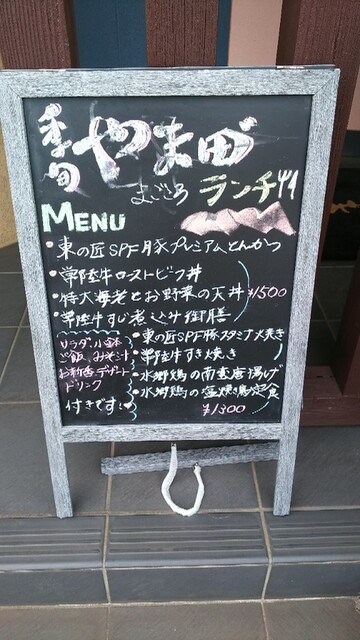 季旬 やま田
まごころ ランチ
MENU
・東の匠SPF豚プレミアムとんかつ
・常陸牛ローストビーフ丼
・特大海老とお野菜の天丼
¥1500
・常陸牛すじ煮込み御膳
・東の匠SPF豚スタミナ焼き
・常陸牛すき焼き
・水郷鶏の南蛮唐揚げ
・水郷鶏の塩焼き定食
¥1300
サラダ、小鉢
ご飯、みそ汁
お新香、デザート
ドリンク
付きです!